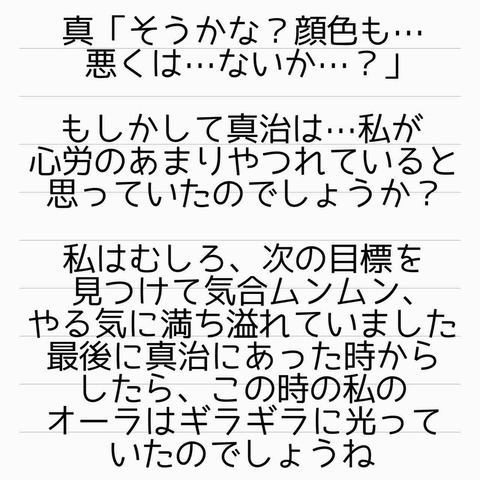 真「そうかな？顔色も…
悪くは…ないか…？」
もしかして真治は…私が
心労のあまりやつれていると
思っていたのでしょうか？
私はむしろ、次の目標を
見つけて気合ムンムン、
やる気に満ち溢れていました
最後に真治にあった時から
したら、この時の私の
オーラはギラギラに光って
いたのでしょうね